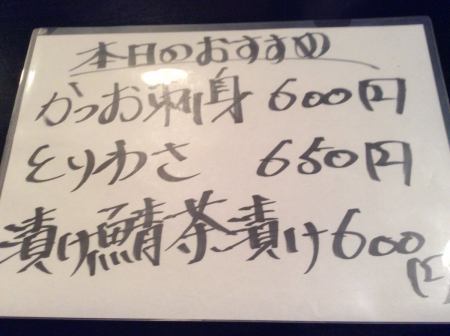 本日のおすすめ
かつお刺身 600円
とりわさ 650円
漬け鯖茶漬け600円